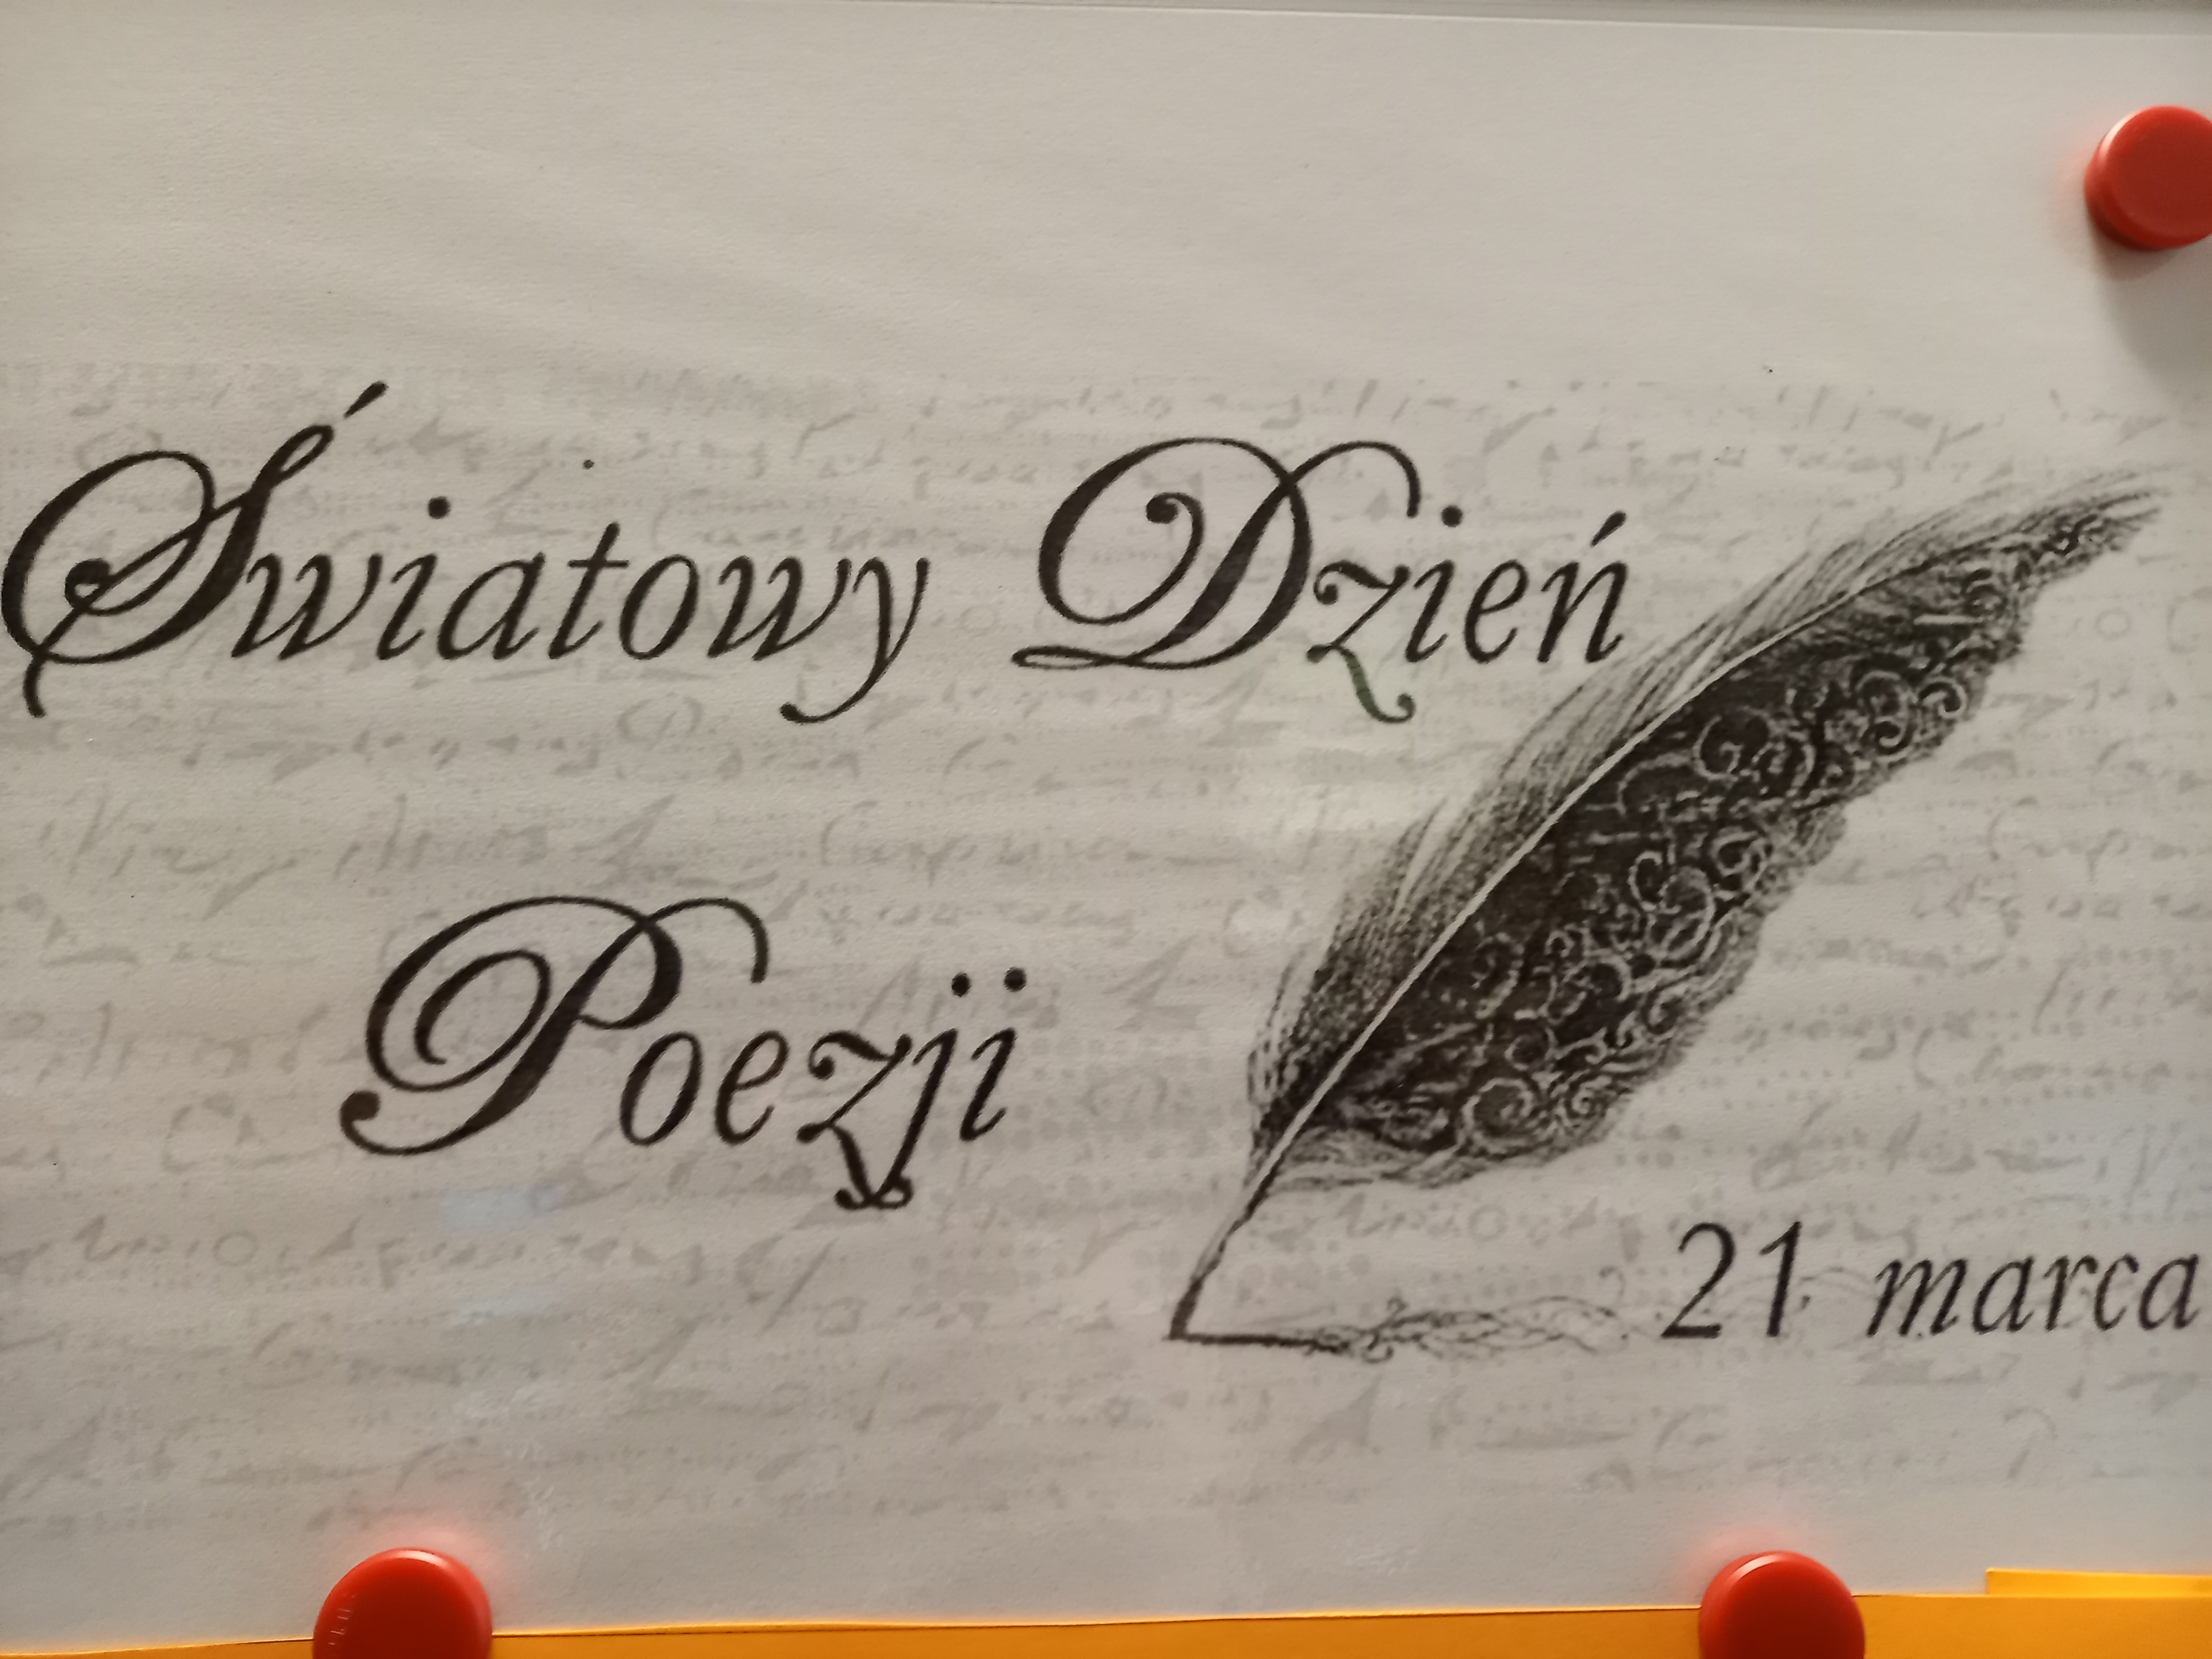 Światowy Dzień
Poezji
21 marca